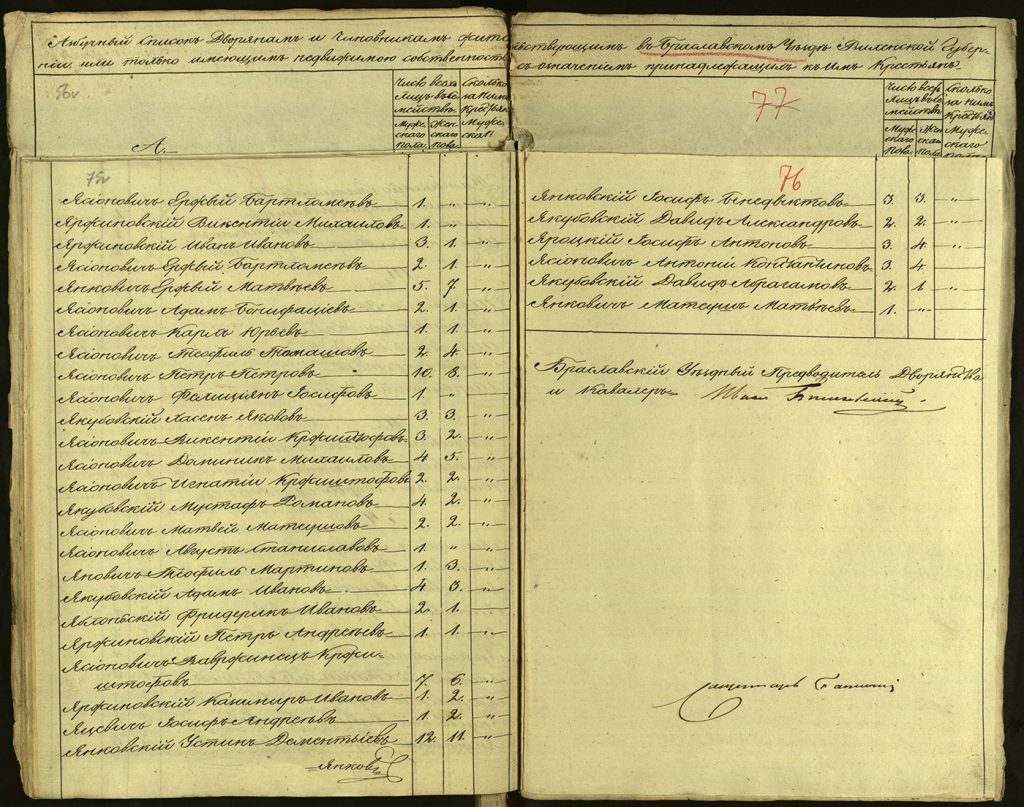 Азбучный Списокъ Дворянамъ и Чиновникамъ жительствующимъ въ Браславскомъ Уѣздѣ Виленской Губер-
ніи или только имеющимъ недвижимую собственность съ означеніемъ принадлежащихъ къ нимъ Крестьянъ.
Число всехъ лицъ въ семействѣ
Мужескаго пола
Женскаго пола
Сколько за ними Крестьянъ Мужескаго
А.
77
Число всехъ лицъ въ семействѣ
Мужескаго пола
Женскаго пола
Сколько за ними Крестьянъ Мужескаго пола
75
Ясіоновичъ Ержій Бартломеевъ 1. „ „
Яржиновскій Викентій Михаиловъ 1. „ „
Яржиновскій Иванъ Ивановъ 3. 1. „
Ясіоновичъ Ержій Бартломеевъ 2. 1. „
Янковичъ Ержій Матвѣевъ 5. 7. „
Ясіоновичъ Адамъ Бонифаціевъ 2. 1. „
Ясіоновичъ Карлъ Юрьевъ 1. 1. „
Ясіоновичъ Теофиль Томашовъ 2. 4. „
Ясіоновичъ Петръ Петровъ 10. 8. „
Ясіоновичъ Фелиціянъ Іосифовъ 1. „ „
Якубовскій Хасенъ Якововъ 3. 3. „
Ясіоновичъ Викентій Кржиштофовъ 3. 2. „
Ясіоновичъ Доминикъ Михаиловъ 4. 5. „
Ясіоновичъ Игнатій Кржиштофовъ 2. 2. „
Якубовскій Мустафъ Романовъ 4. 2. „
Ясіоновичъ Матвей Матеушовъ 2. 2. „
Ясіоновичъ Августъ Станиславовъ 1. „ „
Яновичъ Теофиль Мартиновъ 1. 3. „
Якубовскій Адамъ Ивановъ 4. 3. „
Яблонскій Фридерикъ Ивановъ 2. 1. „
Яржиновскій Петръ Андреевъ 1. 1. „
Ясіоновичъ Вавржинецъ Кржи-
штофовъ 7. 6. „
Яржиновскій Казимиръ Ивановъ 1. 2. „
Яцевичъ Іосифъ Андреевъ 1. 2. „
Янковскій Устинъ Дементьевъ 12. 11. „
Янковс
76
Янковскій Іосифъ Бенедыктовъ 3. 3. „
Якубовскій Давидъ Александровъ 2. 2. „
Яроцкій Іосифъ Антоновъ 3. 4. „
Ясіоновичъ Антоній Константиновъ 3. 4.
Якубовскій Давидъ Абрагамовъ 2. 1 „
Янковичъ Матеушъ Матвѣевъ 1. „
Браславскій Уѣздный Предводитель Дворянства
и Кавалеръ Иванъ